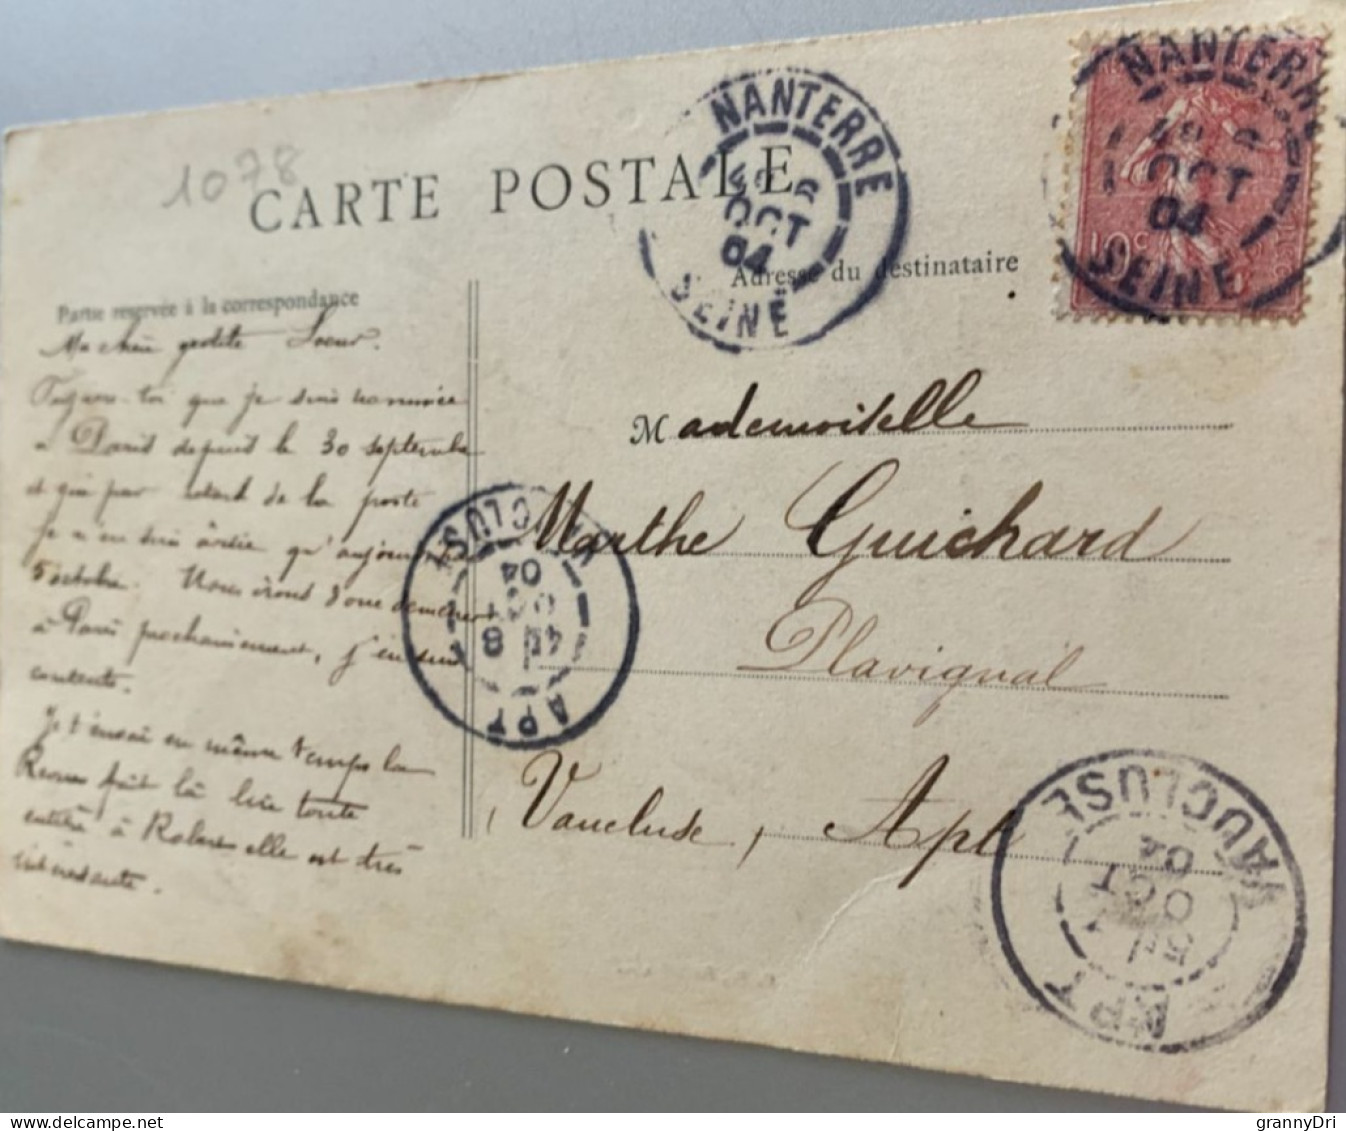 1078
CARTE POSTALE
NANTERRE
6
OCT
04
SEINE
NANTERRE
OCT
04
SEINE
10c
Partie reservée à la correspondance
Adresse du destinataire
Ma chère petite Soeur.
Figure-toi que je suis nommée
à Paris depuis le 30 septembre
et que par retard de la poste
je n'en suis avisée qu'aujourd'hui
5 octobre. Nous irons donc demeurer
à Paris prochainement, j'en suis
contente.
Je t'envoie en même temps la
Revue fait la lire toute
entière à Robert elle est très
intéressante.
Mademoiselle
Marthe Guichard
Plavignal
Vaucluse, Apt
APT
8
OCT
04
VAUCLUSE
APT
OCT
04
VAUCLUSE
grannyDri